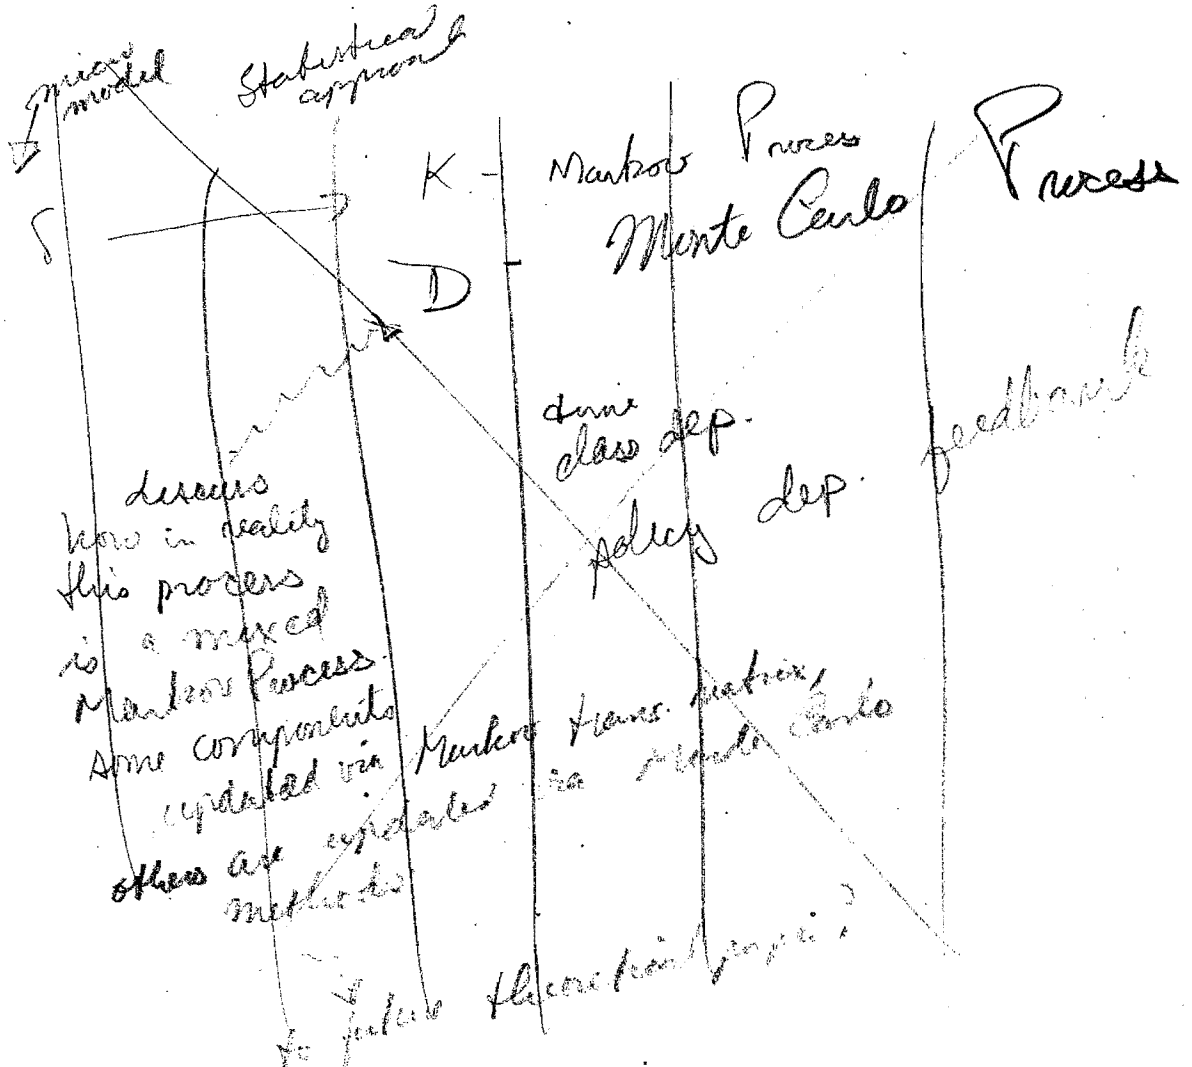 micro
model
Statistical
approach
K - Markov Process
Monte Carlo
Process
D
time
class dep.
policy dep. feedback
discuss
how in reality
this process
is a mixed
Markov Process.
some components
updated via Markov trans. matrix,
others are updated via Monte Carlo
methods
to future theoretical paper?